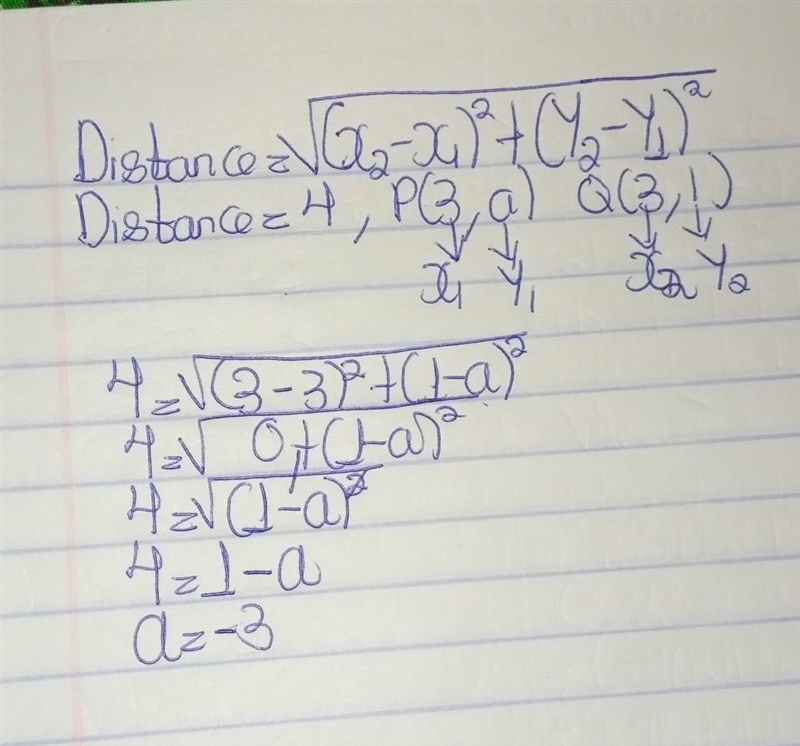 Distance=√(x₂-x₁)²+(Y₂-Y₁)²
Distance=4, P(3,a) Q(3,1)
↓ ↓ ↓ ↓
x₁ Y₁ x₂ Y₂
4=√(3-3)²+(1-a)²
4=√0+(1-a)²
4=√(1-a)²
4=1-a
a=-3